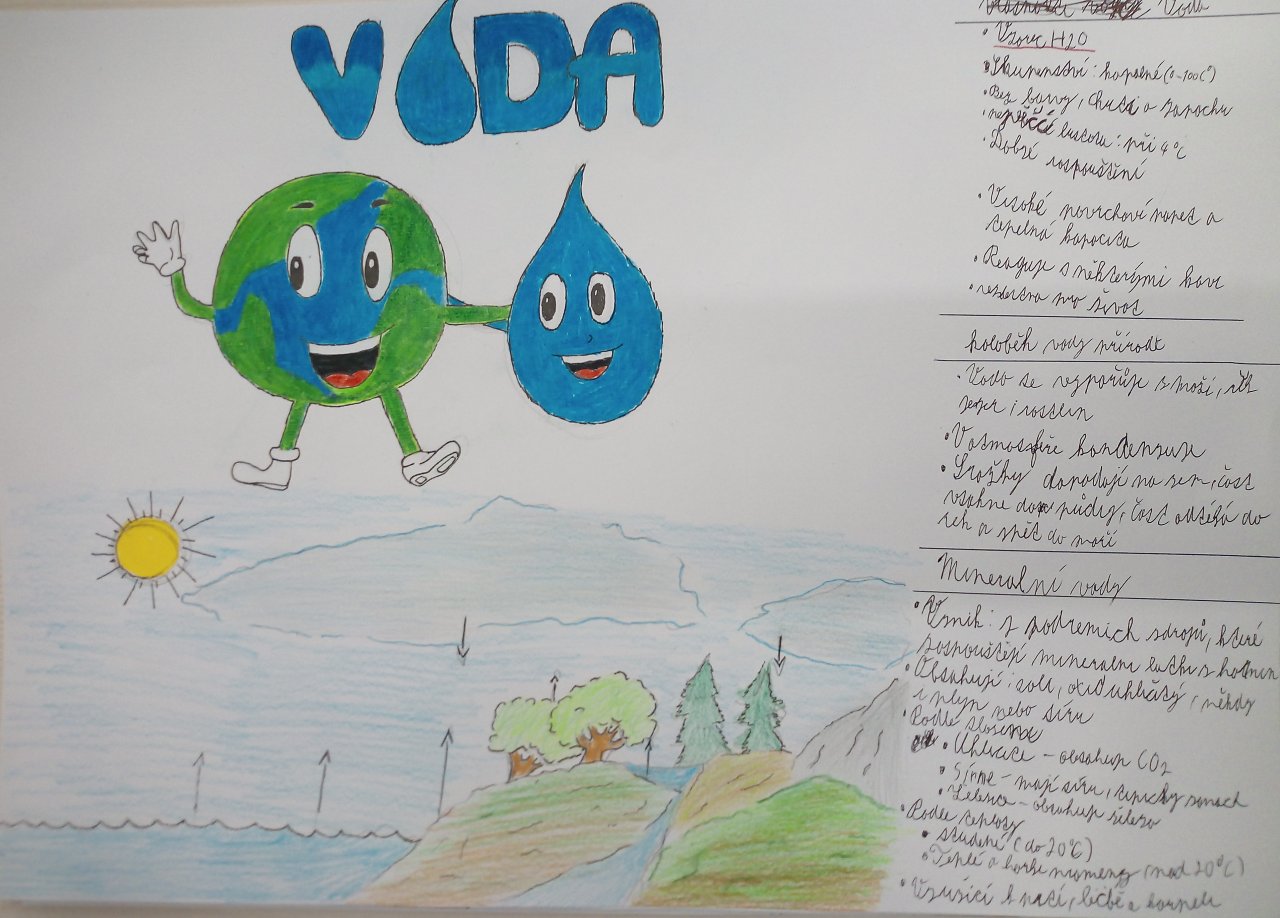 VODA
Voda
Vzorec H2O
Skupenství: kapalné (0-100C°)
Bez barvy, chuti a zapachu
největčí hustota: při 4°C
Dobré rozpouštění
Visoké povrchoví napet a
tepelná kapacita
Reaguje s některými kovi
nezbitna pro život
koloběh vody přírodě
Voda se vypařuje z moží, řek
jezer i rostlin
V atmosféře kondenzuje
Srážky dopadají na zem, část
vsákne do půdy, část odtéká do
řek a spět do moří
Mineralní vody
Vznik: z podzemich zdrojů, které
rozpouštějí mineralni latki z hornin
Obsahují: soli, oxid uhličitý, někdy
i plyn nebo síru
Podle složení
Uhličité - obsahuje CO2
Sirné - mají síru, tipický zapach
Železité - obsahuje železo
Podle teploty
studené (do 20°C)
Teplé a horké prameny (nad 20°C)
Využití k pití, léčbě a koupeli